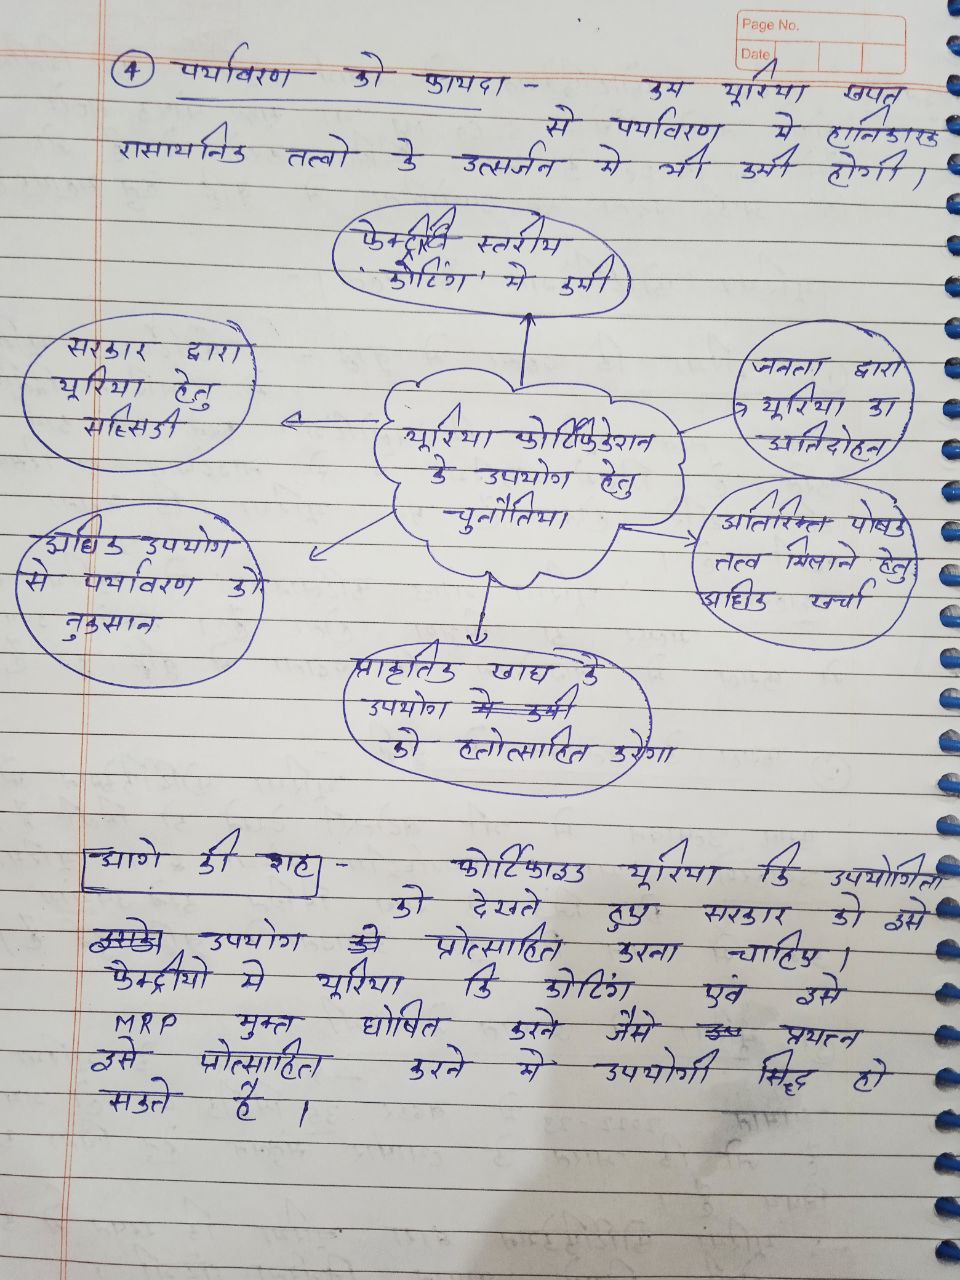 Page No.
Date
4 पर्यावरण को फायदा - कम यूरिया खपत
से पर्यावरण मे हानिकारक
रासायनिक तत्वो के उत्सर्जन मे भी कमी होगी।
स्तरीय
'कोटिंग' मे कमी
सरकार द्वारा
यूरिया हेतु
सब्सिडी
जनता द्वारा
यूरिया का
अतिदोहन
यूरिया फोर्टिफिकेशन
के उपयोग हेतु
चुनौतिया
अतिरिक्त पोषक
तत्व मिलाने हेतु
अधिक खर्चा
अधिक उपयोग
से पर्यावरण को
नुकसान
प्राकृतिक खाद्य के
उपयोग मे कमी
को हतोत्साहित करेगा
आगे की राह - फोर्टिफाइड यूरिया कि उपयोगिता
को देखते हुए सरकार को इसे
उपयोग को प्रोत्साहित करना चाहिए।
फेक्ट्रीयो मे यूरिया कि कोटिंग एवं इसे
MRP मुक्त घोषित करने जैसे प्रयत्न
इसे प्रोत्साहित करने मे उपयोगी सिद्ध हो
सकते है।